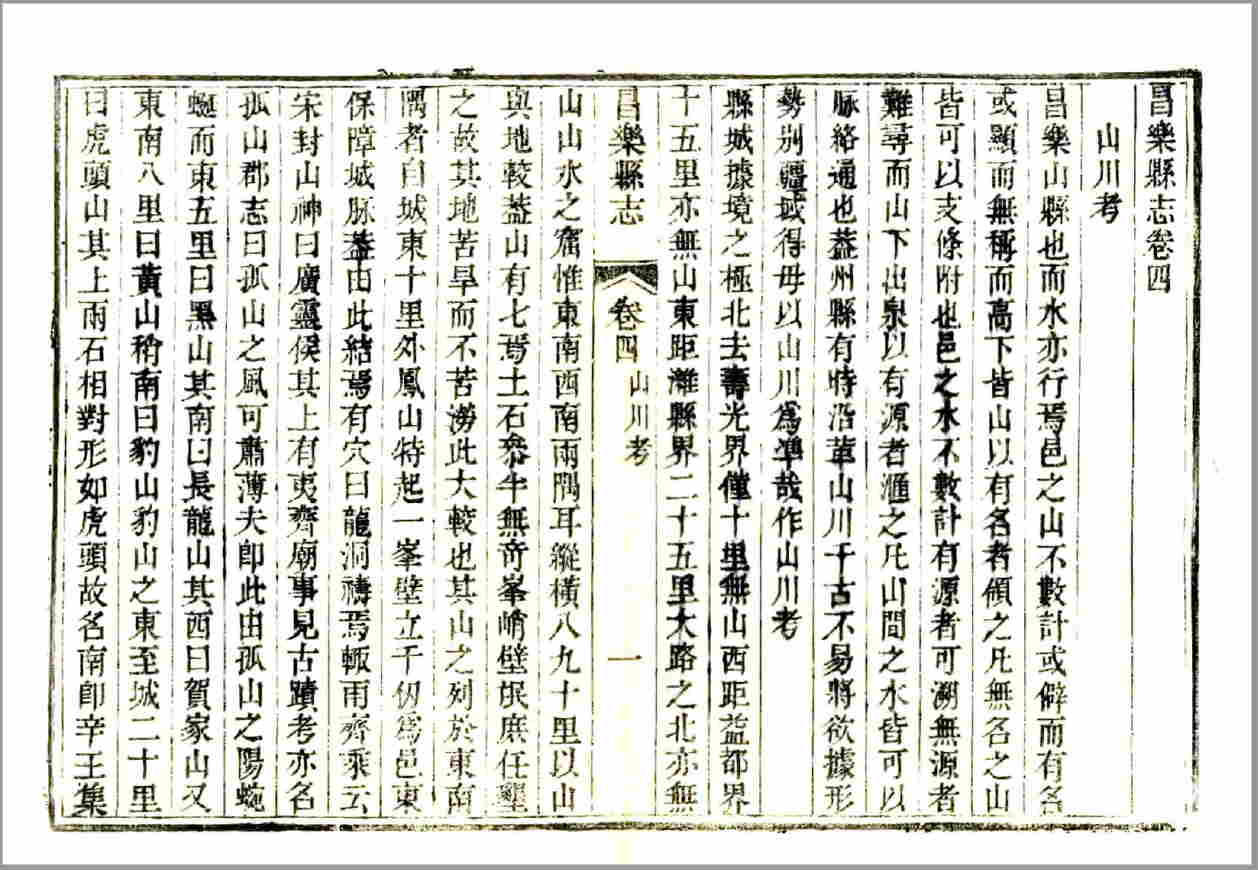 昌樂縣志卷四
山川考
昌樂山縣也而水亦行焉邑之山不數計或僻而有名
或顯而無稱而高下皆山以有名者領之凡無名之山
皆可以支條附也邑之水不數計有源者可溯無源者
難尋而山下出泉以有源者滙之凡山間之水皆可以
脉絡通也蓋州縣有時沿革山川千古不易將欲據形
勢别疆域得毋以山川爲準哉作山川考
縣城據境之極北去壽光界僅十里無山西距益都界
十五里亦無山東距濰縣界二十五里大路之北亦無
昌樂縣志 卷四 山川考 一
山山水之窟惟東南西南兩隅耳縱横八九十里以山
與地較蓋山有七焉土石叅半無竒峯峭壁㞧庶任墾
之故其地苦旱而不苦澇此大較也其山之列於東南
隅者自城東十里外鳳山特起一峯壁立千仞爲邑東
保障城脉蓋由此結焉有穴曰龍洞禱焉輙雨齊乘云
宋封山神曰廣靈侯其上有夷齊廟事見古蹟考亦名
孤山郡志曰孤山之風可肅薄夫卽此由孤山之陽蜿
蜒而東五里曰黑山其南曰長龍山其西曰賀家山又
東南八里曰黃山稍南曰豹山豹山之東至城二十里
曰虎頭山其上兩石相對形如虎頭故名南卽辛王集